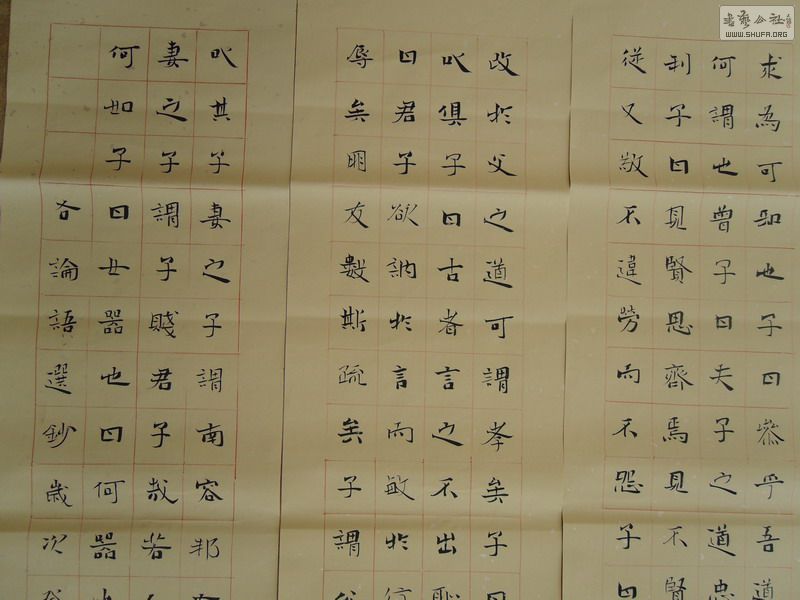 求為可知也子曰參乎吾道
何謂也曾子曰夫子之道忠
利子曰見賢思齊焉見不賢
從又敬不違勞而不怨子曰
改於父之道可謂孝矣子曰
以俱子曰古者言之不出恥
曰君子欲訥於言而敏於行
辱矣朋友數斯疏矣子謂
以其子妻之子謂南容邦
妻之子謂子賤君子哉若
何如子曰女器也曰何器
右論語選鈔歲次
書藝公社
WWW.SHUFA.ORG